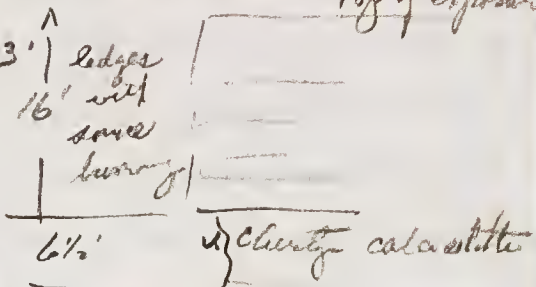 Top of exposure
3' ledges
16' with
some
burrowing
6 1/2' Cherty calcarenite